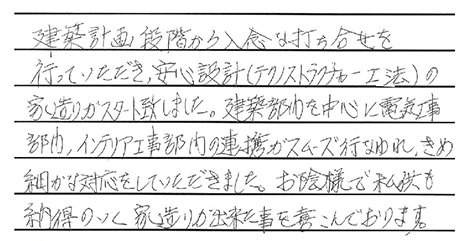 建築計画段階から入念な打ち合せを
行っていただき、安心設計(テクノストラクチャー工法)の
家造りがスタート致しました。建築部内を中心に電気工事
部内、インテリア工事部内の連携がスムーズ行なわれ、きめ
細かな対応をしていただきました。お陰様で私供も
納得のいく家造りが出来た事を喜こんでおります